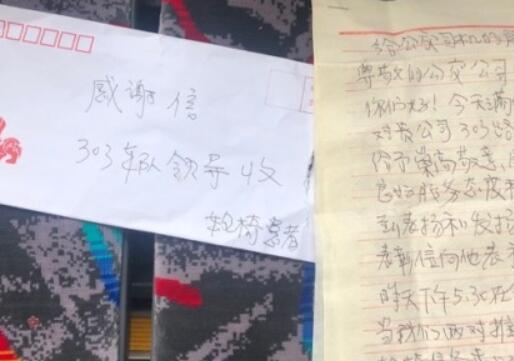 感谢信
303车队领导收
轮椅患者
给公交司机的
尊敬的公交公司
你们好！今天满
对贵公司303路
给予崇高敬意,
良好服务态度和
到表扬和发扬
表彰信向他表
昨天下午5.30在
当我们两对推